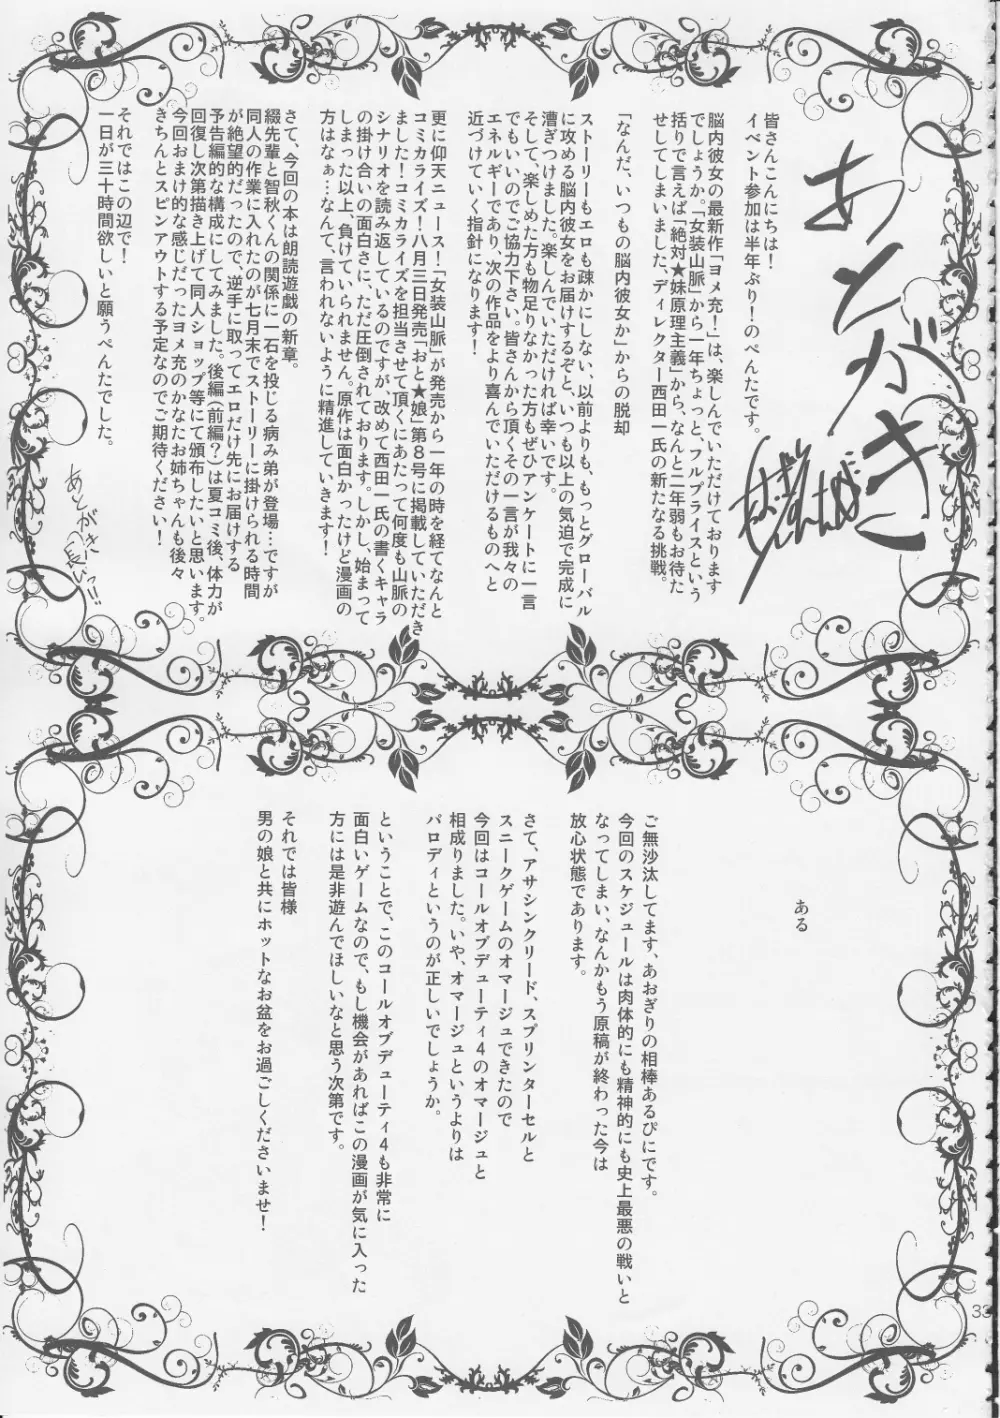 あとがき
皆さんこんにちは！
イベント参加は半年ぶり！のぺんたです。
脳内彼女の最新作「ヨメ充！」は、楽しんでいただけております
でしょうか。「女装山脈」から一年ちょっと、フルプライスという
括りで言えば「絶対★妹原理主義」から、なんと二年弱もお待た
せしてしまいました、ディレクター西田一氏の新たなる挑戦。
「なんだ、いつもの脳内彼女か」からの脱却
ストーリーもエロも疎かにしない、以前よりも、もっとグローバル
に攻める脳内彼女をお届けするぞと、いつも以上の気迫で完成に
漕ぎつけました。楽しんでいただければ幸いです。
そして、楽しめた方も物足りなかった方もぜひアンケートに一言
でもいいのでご協力下さい。皆さんから頂くその一言が我々の
エネルギーであり、次の作品をより喜んでいただけるものへと
近づけていく指針になります！
更に仰天ニュース！「女装山脈」が発売から一年の時を経てなんと
コミカライズ！八月三日発売「おと★娘」第８号に掲載していただき
ました！コミカライズを担当させて頂くにあたって何度も山脈の
シナリオを読み返しているのですが、改めて西田一氏の書くキャラ
の掛け合いの面白さに、ただただ圧倒されております。しかし、始まって
しまった以上、負けていられません。原作は面白かったけど漫画の
方はなぁ…なんて、言われないように精進していきます！
さて、今回の本は朗読遊戯の新章。
綴先輩と智秋くんの関係に一石を投じる病み弟が登場…ですが
同人の作業に入れたのが七月末でストーリーに掛けられる時間
が絶望的だったので、逆手に取ってエロだけ先にお届けする
予告編的な構成にしてみました。後編（前編？）は夏コミ後、体力が
回復し次第描き上げて同人ショップ等にて頒布したいと思います。
今回おまけ的な感じだったヨメ充のかなたお姉ちゃんも後々
きちんとスピンアウトする予定なのでご期待ください！
それではこの辺で！
一日が三十時間欲しいと願うぺんたでした。
あとがき
長いっ!!
ある
ご無沙汰してます、あおぎりの相棒あるぴにです。
今回のスケジュールは肉体的にも精神的にも史上最悪の戦いと
なってしまい、なんかもう原稿が終わった今は
放心状態であります。
さて、アサシンクリード、スプリンターセルと
スニークゲームのオマージュできたので
今回はコールオブデューティ4のオマージュと
相成りました。いや、オマージュというよりは
パロディというのが正しいでしょうか。
ということで、このコールオブデューティ4も非常に
面白いゲームなので、もし機会があればこの漫画が気に入った
方には是非遊んでほしいなと思う次第です。
それでは皆様
男の娘と共にホットなお盆をお過ごしくださいませ！
33